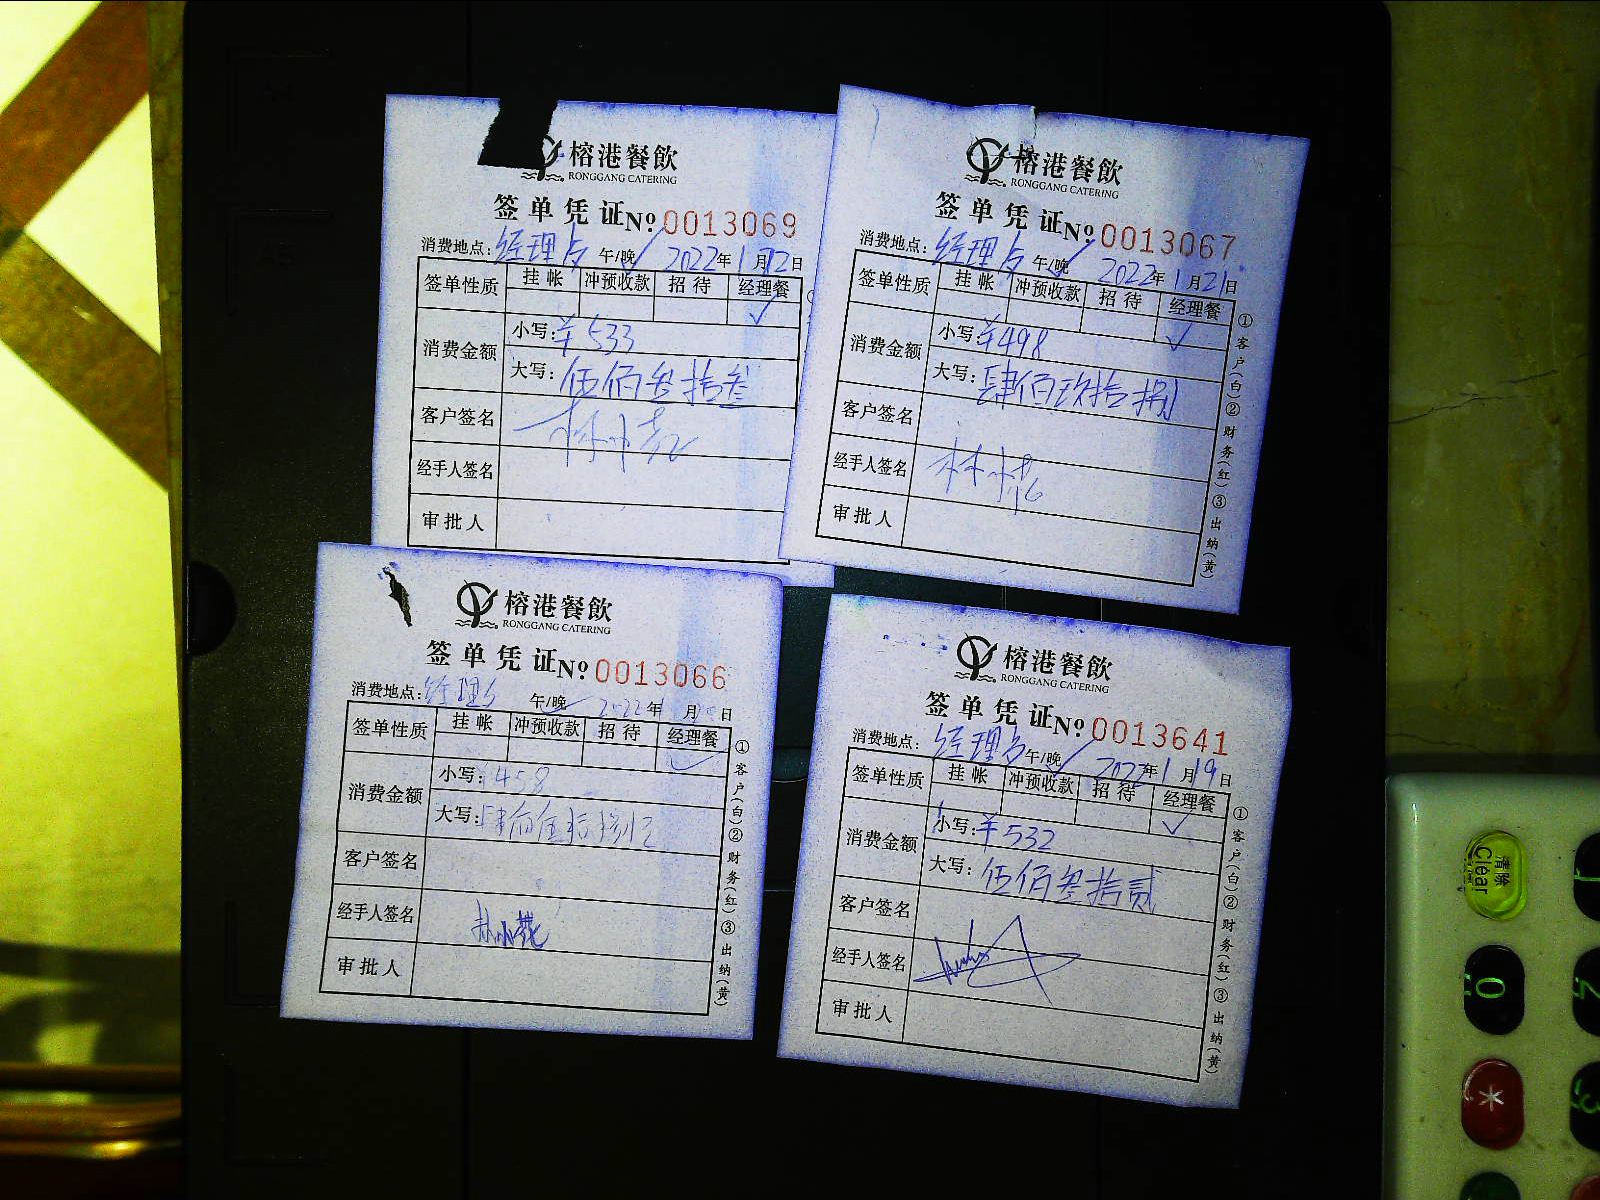 榕港餐飲
RONGGANG CATERING
签单凭证 No 0013069
消费地点: 经理 午/晚 2022年1月12日
签单性质 挂帐 冲预收款 招待 经理餐
✓
消费金额 小写: ¥533
大写: 伍佰叁拾叁
客户签名
经手人签名
审批人
榕港餐飲
RONGGANG CATERING
签单凭证 No 0013067
消费地点: 经理 午/晚 2022年1月21日
签单性质 挂帐 冲预收款 招待 经理餐
✓
消费金额 小写: ¥498
大写: 肆佰玖拾捌
客户签名
经手人签名
审批人
①客户(白)②财务(红)③出纳(黄)
榕港餐飲
RONGGANG CATERING
签单凭证 No 0013066
消费地点: 经理 午/晚 2022年 月 日
签单性质 挂帐 冲预收款 招待 经理餐
✓
消费金额 小写: 458
大写:
客户签名
经手人签名
审批人
①客户(白)②财务(红)③出纳(黄)
榕港餐飲
RONGGANG CATERING
签单凭证 No 0013641
消费地点: 经理 午/晚 2022年1月19日
签单性质 挂帐 冲预收款 招待 经理餐
✓
消费金额 小写: ¥532
大写: 伍佰叁拾贰
客户签名
经手人签名
审批人
①客户(白)②财务(红)③出纳(黄)
清除
Clear
0
*